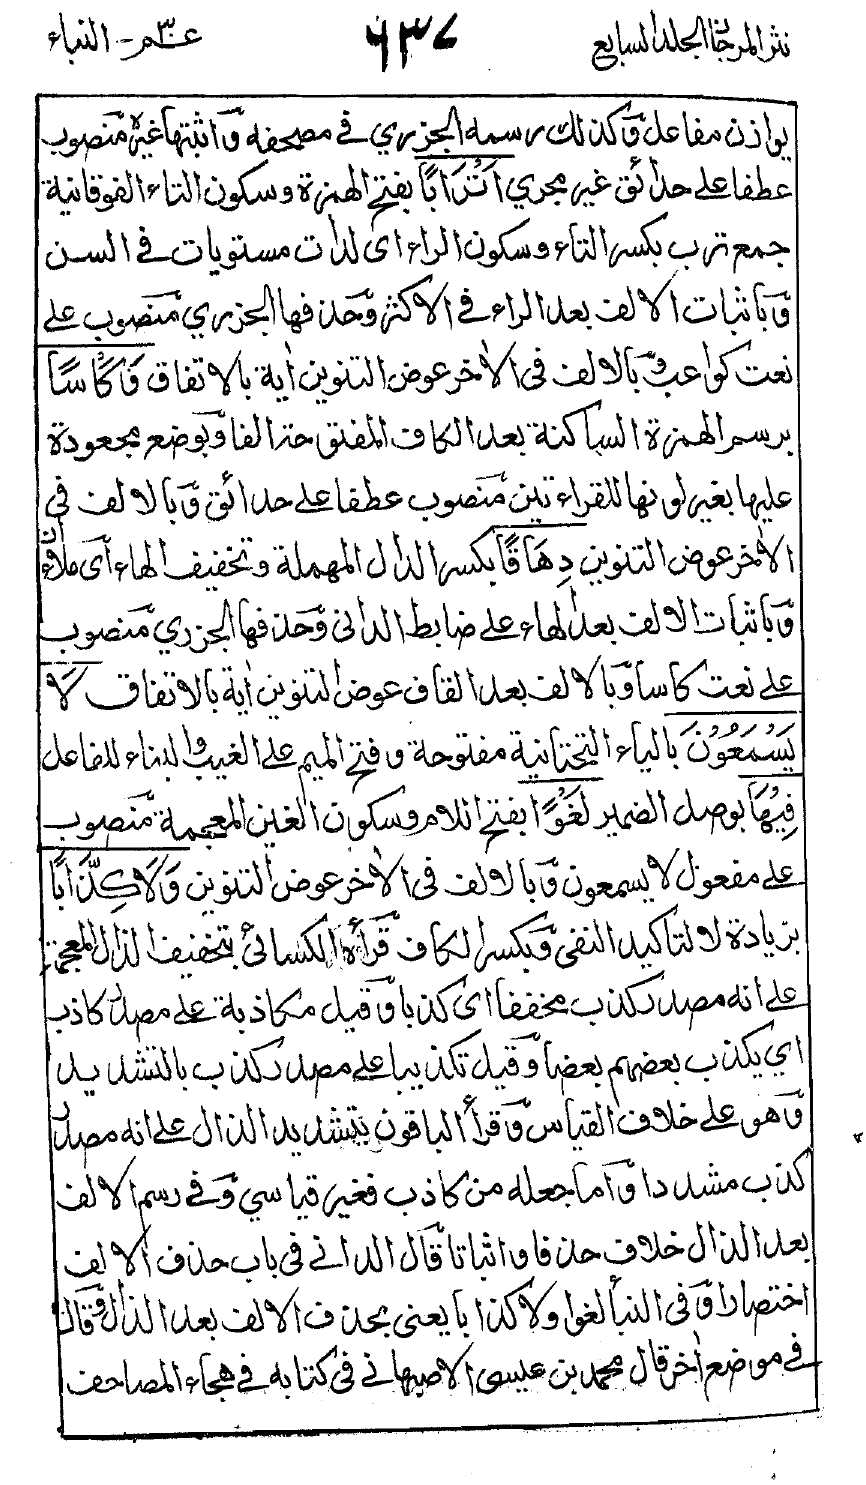 نثر المرجان الجلد السابع ٦٣٧ عـم ٣٠ - النباء
يوازن مفاعل وَكذلك رسمه الجزري في مصحفه وَاثبتها غيره مَنصوب
عطفا على حدائق غير مجري اَتْرَابًا بفتح الهمزة وسكون التاء الفوقانية
جمع ترب بكسر التاء وسكون الراء اى لدات مستويات في السن
وَباثبات الالف بعد الراء في الاكثر وَحذفها الجزري مَنصوب على
نعت كواعب وَبالالف في الاٰخر عوض التنوين اٰية بالاتفاق وَكَاْسًا
برسم الهمزة الساكنة بعد الكاف المفتوحة الفا وَبوضع مجعودة
عليها بغير لونها للقراءتين مَنصوب عطفا على حدائق وَبالالف في
الاٰخر عوض التنوين دِهَاقًا بكسر الدال المهملة وتخفيف الهاء اَى ملاٰنة
وَباثبات الالف بعد الهاء على ضابط الدانى وَحذفها الجزري مَنصوب
على نعت كاسا وَبالالف بعد القاف عوض التنوين اٰية بالاتفاق لَا
يَسْمَعُوْنَ بالياء التحتانية مفتوحة وفتح الميم على الغيب والبناء للفاعل
فِيْهَا بوصل الضمير لَغْوًا بفتح اللام وسكون الغين المعجمة مَنصوب
على مفعول لا يسمعون وَبالالف في الاٰخر عوض التنوين وَلَا كِذَّابًا
بزيادة لا لتاكيد النفى وَبكسر الكاف قرأه الكسائى بتخفيف الذال المعجمة
على انه مصدر كذب مخففا اى كذبا وَقيل مكاذبة على مصدر كاذب
اي يكذب بعضهم بعضا وَقيل تكذيبا على مصدر كذب بالتشديد
وَهو على خلاف القياس وَقرأ الباقون بتشديد الذال على انه مصدر
كذب مشددا وَاما جعله من كاذب فغير قياسي وَفي رسم الالف
بعد الذال خلاف حذفا واثباتا قَال الداني في باب حذف الالف
اختصارا وَفي النبأ لغوا ولا كذابا يعنى بحذف الالف بعد الذال وَقال
في موضع اٰخر قال محمد بن عيسى الاصبهاني في كتابه في هجاء المصاحف